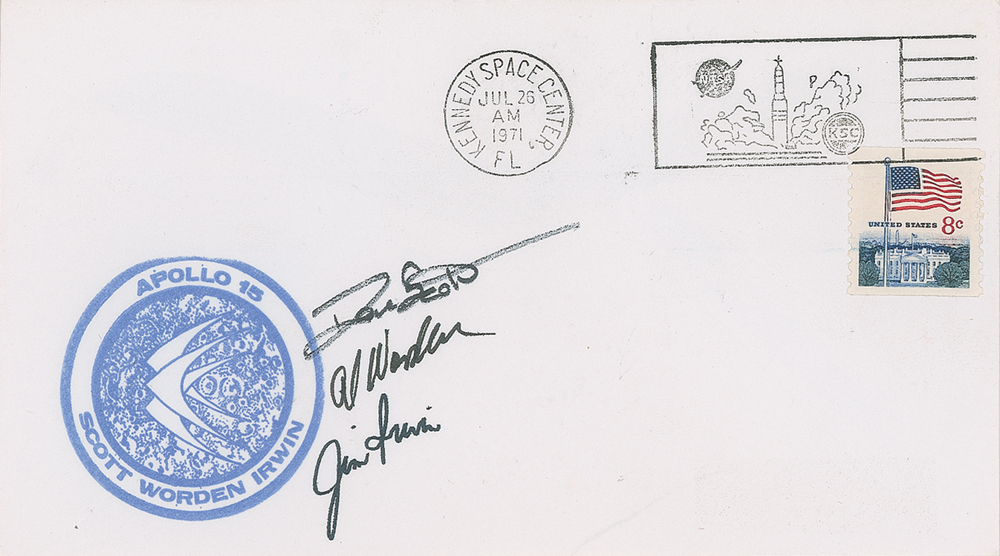 KENNEDY SPACE CENTER,
JUL 26
AM
1971
FL
NASA
KSC
UNITED STATES 8c
APOLLO 15
SCOTT WORDEN IRWIN
Dave Scott
Al Worden
Jim Irwin